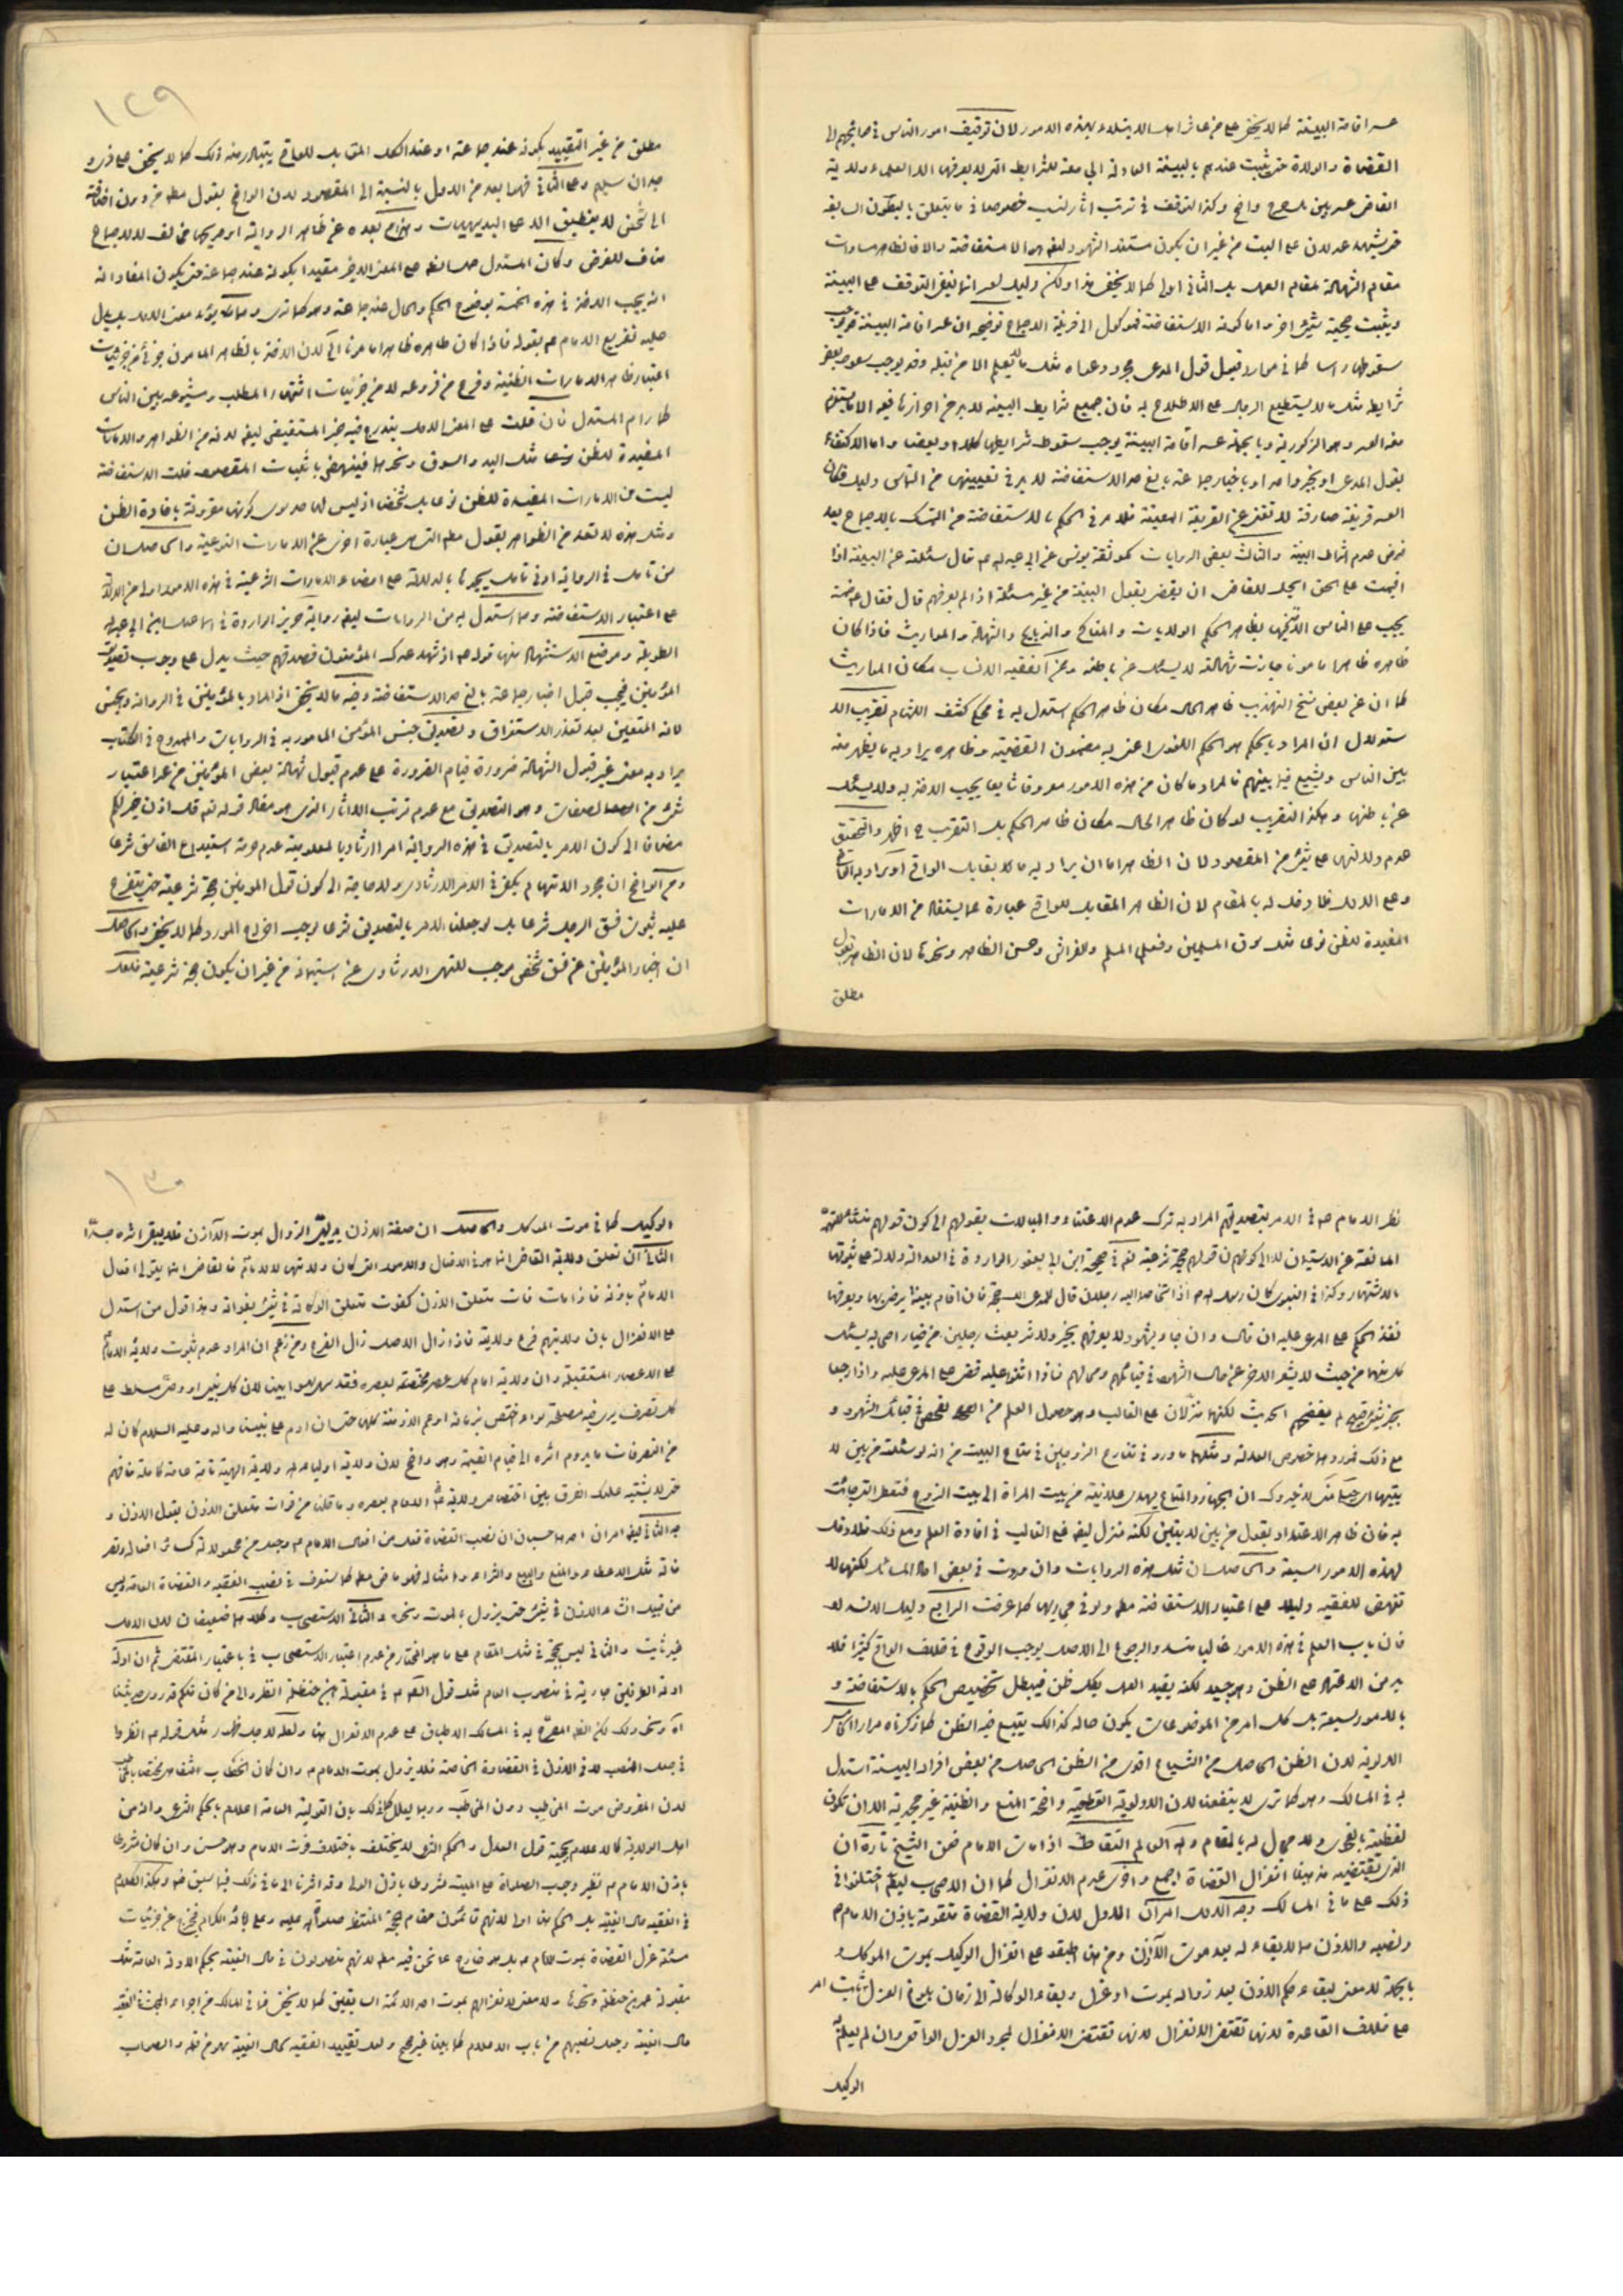 عسر اقامة البينة كما لا يخفى على من عاشر اهل الابتلاء بهذه الامور لان توقيف امور الناس في حوائجهم الى
القضاة والولاة حتى يثبت عندهم بالبينة العادلة الجامعة للشرايط التي لا يعرفها الا العلماء ولاية
القاضي عسر بين وحرج واضح وكذا التوقف في ترتب اثار النسب خصوصا في ما يتعلق بالبطون السابقة
مقام الشهادة بمقام العمل بل الثاني اولى كما لا يخفى هذا ولكن دليل العسر انما ينفي التوقف على البينة
ويثبت حجية شيء اخر واما كونه الاستفاضة فموكول الى قرينة الاجماع توضيحه ان عسر اقامة البينة قد يوجب
سقوطها راسا كما في موارد قبول قول المدعي بمجرد دعواه مثل ما لا يعلم الا من قبله وقد يوجب سقوط بعض
شرايط مثل ما لا يستطيع الرجال على الاطلاع به فان جميع شرايط البينة لا بد من احرازها فيه الا ما يقتضي
معه العسر وهو الذكورية وبالجملة عسر اقامة البينة يوجب سقوط شرايطها كلا او بعضا واما الاكتفاء
بقول المدعي او بخبر واحد او باخبار جماعة بالغ حد الاستفاضة لا بد في تعيينها من التماس دليل فكان
العسر قرينة صارفة لا تغني عن القرينة المعينة فلا بد في الحكم بالاستفاضة من التمسك بالاجماع بعد
فرض عدم اشتراط البينة والثالث بعض الروايات كموثقة يونس عن ابي عبد الله ع قال سئلته عن البينة اذا
اقيمت على الحق ايحل للقاضي ان يقضي بقول البينة من غير مسئلة اذا لم يعرفهم قال فقال ع خمسة
يجب على الناس الاخذ بها بظاهر الحكم الولايات والمناكح والذبايح والشهادة والمواريث فاذا كان
ظاهره ظاهرا مامونا جازت شهادته لا يسئل عن باطنه وعن الفقيه الانساب مكان المواريث
كما ان عن بعض نسخ التهذيب ظاهر الحال مكان ظاهر الحكم استدل به في محكي كشف اللثام تقريب الا
ستدلال ان المراد بالحكم هو الحكم اللغوي اعني به مضمون القضية وظاهره يراد به ما يظهر منه
بين الناس ويشيع فيما بينهم فالمراد ما كان من هذه الامور معروفا شايعا يجب الاخذ به ولا يسئل
عن باطنها وهكذا التقريب لو كان ظاهر الحال مكان ظاهر الحكم بل التقريب ح اظهر والتحقيق
عدم دلالتها على شيء من المقصود لان الظاهر اما ان يراد به ما لا يقابل الواقع او يراد به الثاني
وعلى الاول فلا دخل له بالمقام لان الظاهر المقابل للواقع عبارة عما يستفاد من الامارات
المفيدة للظن نوعا مثل سوق المسلمين وفعل المسلم والفراش وحسن الظاهر ونحوها لان الظاهر بقول
مطلق
١٢٩
مطلق من غير التقييد بكونه عند جماعة او عند الكل المقابل للواقع يتبادر منه ذلك كما لا يخفى على ذي و
جدان سليم وعلى الثاني فهو ابعد من الاول بالنسبة الى المقصود لان الواقع بقول مطلق من دون اضافة
الى شخص لا ينطبق الا على البديهيات والتزام بعده عن ظاهر الرواية او صريحها مخالف للاجماع
مناف للغرض وكان المستدل حمل لفظ على المعنى الاخر مقيدا بكونه عند جماعة حتى يكون المفاد انه
انه يجب الاخذ في هذه الخمسة بوضوح الحكم والحال عند جماعة وهو كما ترى ومما يؤيد معنى الاول بل يدل
عليه تفريع الامام ع بقوله فاذا كان ظاهره ظاهرا مامونا الى لان الاخذ بالظاهر المامون جزئي من جزئيات
اعتبار ظاهر الامارات الظنية وفرع من فروعه لا من جزئيات اشتهار المطلب وشيوعه بين الناس
كما رام المستدل فان قلت على المعنى الاول يندرج فيه خبر المستفيض ايضا لانه من الظواهر والامارات
المفيدة للظن نوعا مثل اليد والسوق ونحوها فينهض باثبات المقصود قلت الاستفاضة
ليست من الامارات المفيدة للظن نوعا بل شخصا اذ ليس لها حد سوى كونها مقرونة بافادة الظن
ومثل هذه لا تعد من الظواهر بقول مطلق التي هي عبارة اخرى عن الامارات النوعية والحاصل ان
من تامل في الرواية ادنى تامل يجدها بالدلالة على امضاء الامارات الشرعية في هذه الامور اولى من الدلالة
على اعتبار الاستفاضة ومما استدل به من الروايات ايضا رواية حريز الواردة في اسماعيل بن ابي عبد الله
الطويلة وموضع الاستشهاد منها قوله ع اذا شهد عندك المؤمنون فصدقهم حيث يدل على وجوب تصديق
المؤمنين فيجب قبول اخبار جماعة بالغ حد الاستفاضة وفيه ما لا يخفى اذ المراد بالمؤمنين في الرواية وبجنس
لانه المتعين بعد تعذر الاستغراق وتصديق جنس المؤمن المامور به في الروايات والممدوح في الكتاب
يراد به معنى غير قبول الشهادة ضرورة قيام الضرورة على عدم قبول شهادة بعض المؤمنين من غير اعتبار
شيء من الصفات وهو التصديق مع عدم ترتب الاثار الذي هو مفاد قوله تعالى قل اذن خير لكم
مضافا الى كون الامر بالتصديق في هذه الرواية امرا ارشاديا لمعلومية عدم حرمة استيداع الفاسق شرعا
ومن الواضح ان مجرد الاتهام يكفي في الامر الارشادي ولا حاجة الى كون قول المؤمنين حجة شرعية حتى يتفرع
عليه ثبوت فسق الرجل شرعا بل لو جعلنا الامر بالتصديق شرعا يوجب اخراج المورد كما لا يخفى والحاصل
ان اخبار المؤمنين عن فسق شخص يوجب للنهي الارشادي عن استيمانه من غير ان يكون حجة شرعية فلعل
نظر الامام ع في الامر بتصديقهم المراد به ترك عدم الاعتناء والمبالات بقولهم الى كون قولهم منشأ للتهمة
المانعة عن الاستيمان لا الى كونهم قولهم حجة شرعية نعم في صحيحة ابن ابي يعفور الواردة في العدالة ولالة على ثبوتها
بالاشتهار وكذا في النبوي كان رسول الله ص اذا تخاصم اليه رجلان قال للمدعي الك حجة فان اقام بينة يرضيها ويعرفها
نفذ الحكم على المدعى عليه ان قال وان جاء بشهود لا يعرفهم بخير ولا شر بعث رجلين من خيار اصحابه يسئل
كل منهما من حيث لا يشعر الاخر عن حال الشهود في قبائلهم ومحالهم فاذا اثنوا عليه قضى على المدعى عليه واذا رجعا
بخبر شين قبيح لم يفضحهم الحديث لكنهما منزلان على الغالب وهو حصول العلم من الفحص في قبائل الشهود و
مع ذلك فموردهما خصوص العدالة ومثلهما ما ورد في تنازع الزوجين في متاع البيت من انه لو سئلت من بين لا
بتيها اي جبلي منى لاخبروك ان الجهاز والمتاع يهدى علانية من بيت المراة الى بيت الزوج فتعطى التي جائت
به فان ظاهر الاعتداد بقول من بين لابتين لكنه منزل ايضا على الغالب في افادة العلم ومع ذلك فلا دخل
لهذه الامور السبعة والحاصل ان مثل هذه الروايات وان وردت في بعض المسائل لكنها لا
تنهض للفقيه دليلا على اعتبار الاستفاضة مطلقا ولو في مجاريها كما عرفت الرابع دليل الانسداد
فان باب العلم في هذه الامور غالبا منسد والرجوع الى الاصل يوجب الوقوع في خلاف الواقع كثيرا فلا
بد من الاعتماد على الظن وهو جيد لكنه يفيد العمل بكل ظن فيبطل تخصيص الحكم بالاستفاضة و
بالامور السبعة بل كل امر من الموضوعات يكون حاله كذلك يتبع فيه الظن كما ذكرناه مرارا الخامس
الاولوية لان الظن الحاصل من الشياع اقوى من الظن الحاصل من بعض افراد البينة استدل
به في المسالك وهو كما ترى لا ينفعنا لان الاولوية القطعية واضحة المنع والظنية غير مجدية الا ان تكون
لفظية بالفحوى ولا مجال له بالمقام والله العالم التقاط اذا مات الامام فعن الشيخ تارة ان
الذي يقتضيه مذهبنا انعزال القضاة اجمع واخرى عدم الانعزال كما ان الاصحاب ايضا اختلفوا في
ذلك على ما في المسالك وجه الاول امران الاول لان ولاية القضاة متقومة باذن الامام ع
ونصبه والاذن مما لا بقاء له بعد موت الآذن ومن هنا اطبقوا على انعزال الوكيل بموت الموكل و
بالجملة لا معنى لبقاء حكم الاذن بعد زواله بموت او عزل وبقاء الوكالة الى زمان بلوغ العزل ثابت امر
على خلاف القاعدة لانها تقتضي الانعزال لانها تقتضي الانعزال بمجرد العزل الواقعي وان لم يعلم به
الوكيل
١٣٠
الوكيل كما في موت الموكل والحاصل ان صفة الاذن بديهي الزوال بموت الآذن فلا يبقى اثره جدا
الثاني ان تعلق ولاية القاضي انما هو في الافعال والامور التي كان ولايتها للامام فالقاضي انما يتولى افعال
الامام باذنه فاذا مات فات متعلق الاذن كفوت متعلق الوكالة في شيء بفواته وبهذا قول من استدل
على الانعزال بان ولايتهم فرع ولايته فاذا زال الاصل زال الفرع ومن زعم ان المراد عدم ثبوت ولاية الامام
على الاعصار المستقبلة وان ولاية امام كل عصر مختصة بعصره فقد سهى سهوا بينا لان كل نبي او وصي مسلط على
كل تصرف يرى فيه مصلحة سواء اختص بزمانه او عم الازمنة كلها حتى ان ادم على نبينا واله وعليه السلام كان له
من التصرفات ما يدوم اثره الى قيام القيمة وهو واضح لان ولاية اولياء الله ولاية الهية تامة عامة كاملة فافهم
حتى لا يشتبه عليك الفرق بين اختصاص ولاية الامام بعصره وما قلنا من فوات متعلق الاذن بقول الاذن و
جه الثاني ايضا امران احدهما حسبان ان نصب القضاة فعل من افعال الامام ع وجعل من مجعولاته كسائر افعاله وتصر
فاته مثل الاعطاء والمنع والبيع والشراء وامثاله فهو ماض مطلقا كما ستعرف في نصب الفقيه والقضاة العامة وليس
من قبيل انشاء الاذن في شيء حتى يزول بالموت ونحوه والثاني الاستصحاب وكلاهما ضعيفان لان الاول
غير ثابت والثاني ليس بحجة في مثل المقام على ما هو المختار من عدم اعتبار الاستصحاب في باعتبار المقتضي ثم ان ادلة
ادلة الطرفين جارية في منصوب العام مثل قول الامام ع في مقبولة ابن حنظلة انظروا الى من كان منكم قد روى حديثنا
اه ونحو ذلك لكن الظاهر المصرح به في المسالك الاطباق على عدم الانعزال هنا ولعله لاجل ظهور مثل قوله ع انظروا
في جعل المنصب لا في الاذن في القضاوة الخاصة فلا يزول بموت الامام ع وان كان الخطاب شفاهيا مختصا بالمخاطب
لان المفروض موت المخاطِب دون المخاطَب وربما يعلل كذلك بان التولية العامة اعلام بالحكم الشرعي وانه من
اهل الولاية كالاعلام بحجية قول العدل والحكم الشرعي لا يختلف باختلاف فوت الامام وهو حسن وان كان مشروطا
باذن الامام ع نظير وجوب الصلوة على الميت مشروطا باذن الولي وقد اشرنا الى ما في ذلك فيما سبق منه وهكذا الكلام
في الفقيه حال الغيبة بل الحكم هنا اولى لانهم قائمون مقام الحجة المنتظر صلوات الله عليه وعلى ابائه الكرام فخرج عن جزئيات
مسئلة عزل القضاة بموت الامام ع بل هو خارج عما نحن فيه مطلقا لانهم منصوبون في حال الغيبة بحكم الادلة العامة مثل
مقبولة عمر بن حنظلة ونحوها ولا معنى لانعزالهم بموت احد الائمة السابقين كما لا يخفى فما في المسالك من اجراء البحث في الفقيه
حال الغيبة وجعل نصبهم من باب الاعلام كما بينا غير صحيح ولعل تقييد الفقيه بحال الغيبة سهو من قلمه والصواب